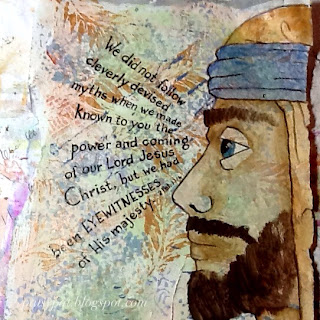 We did not follow
cleverly devised
myths when we made
known to you the
power and coming
of our Lord Jesus
Christ, but we had
been EYEWITNESSES
of His majesty.